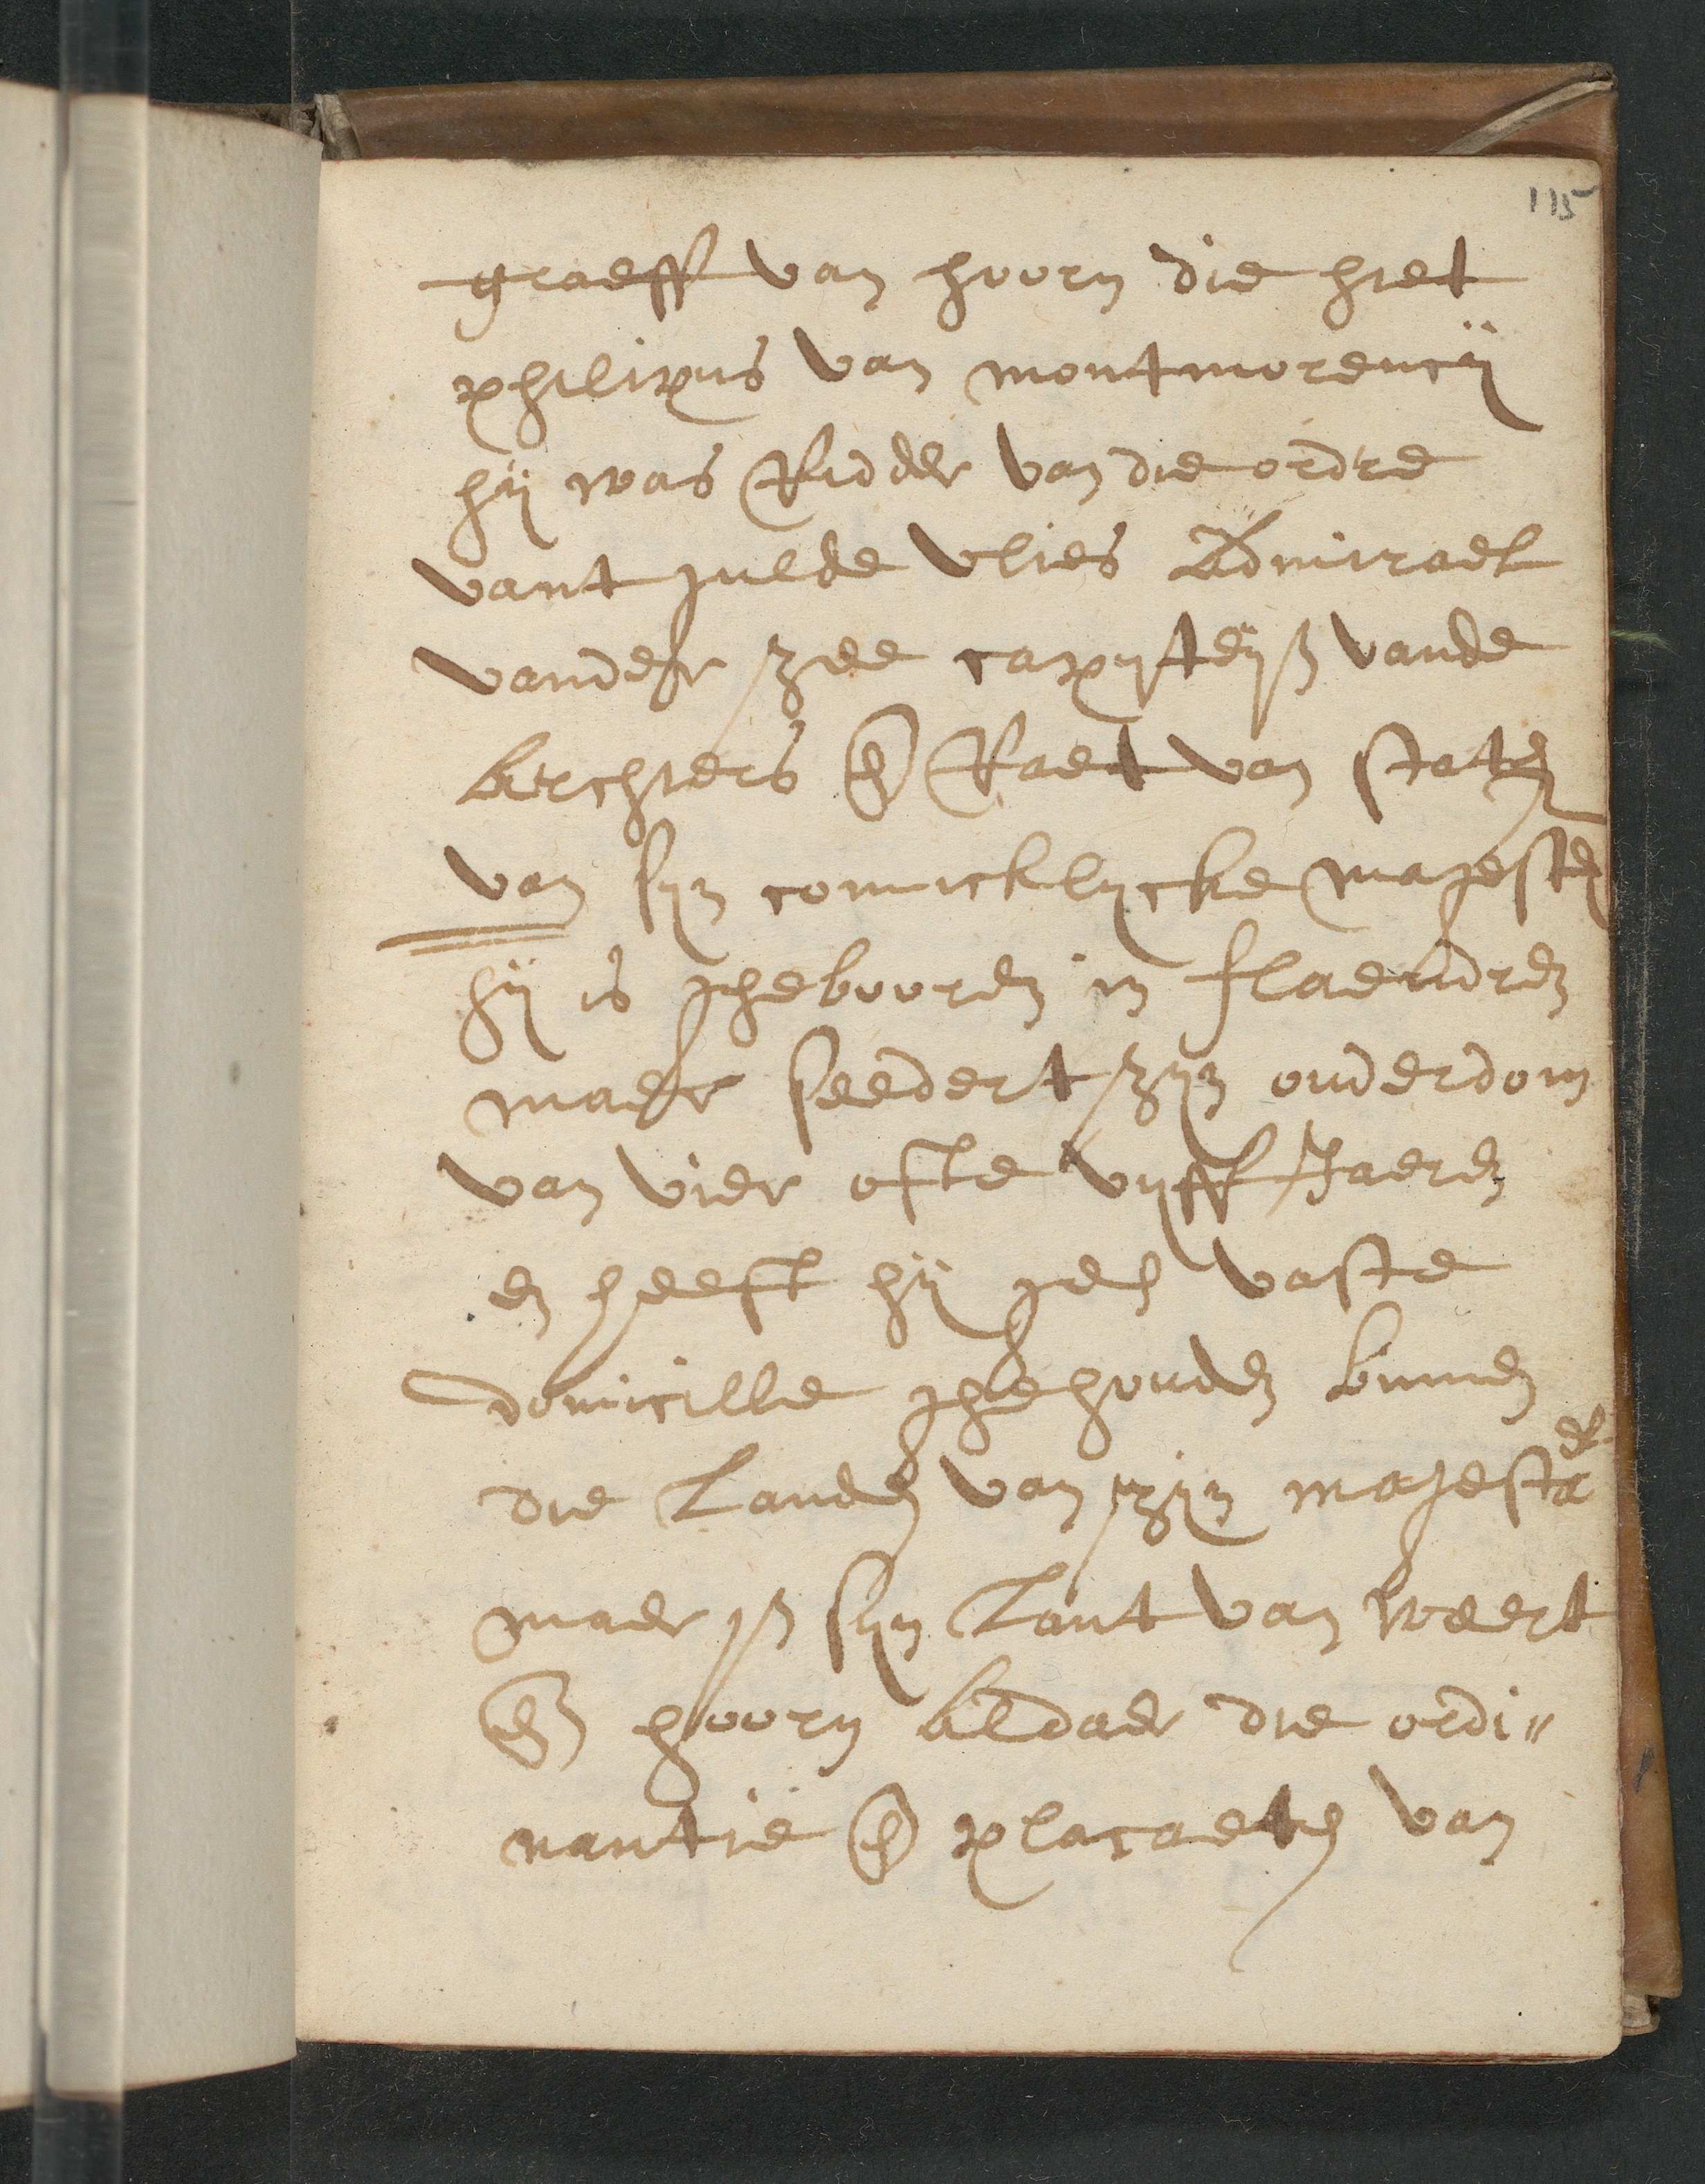 115
graeff van hoorn die hiet
philipus van montmorencÿ
hÿ was Ridder van die ordre
vant gulde vlies Admirael
vander zee capyteÿn vande
archiers en Raet van staten
van syn conicklycke majesteÿ
hÿ is gheboorden in flaendren
maer seedert zyn ouderdom
van vier ofte vyff Jaeren
en heeft hÿ geen vaste
domicille ghehouden binnen
die Landen van zyn majesteit
maer in syn Lant van weert
en hoorn aldaer die ordi"
nantie en placaeten van